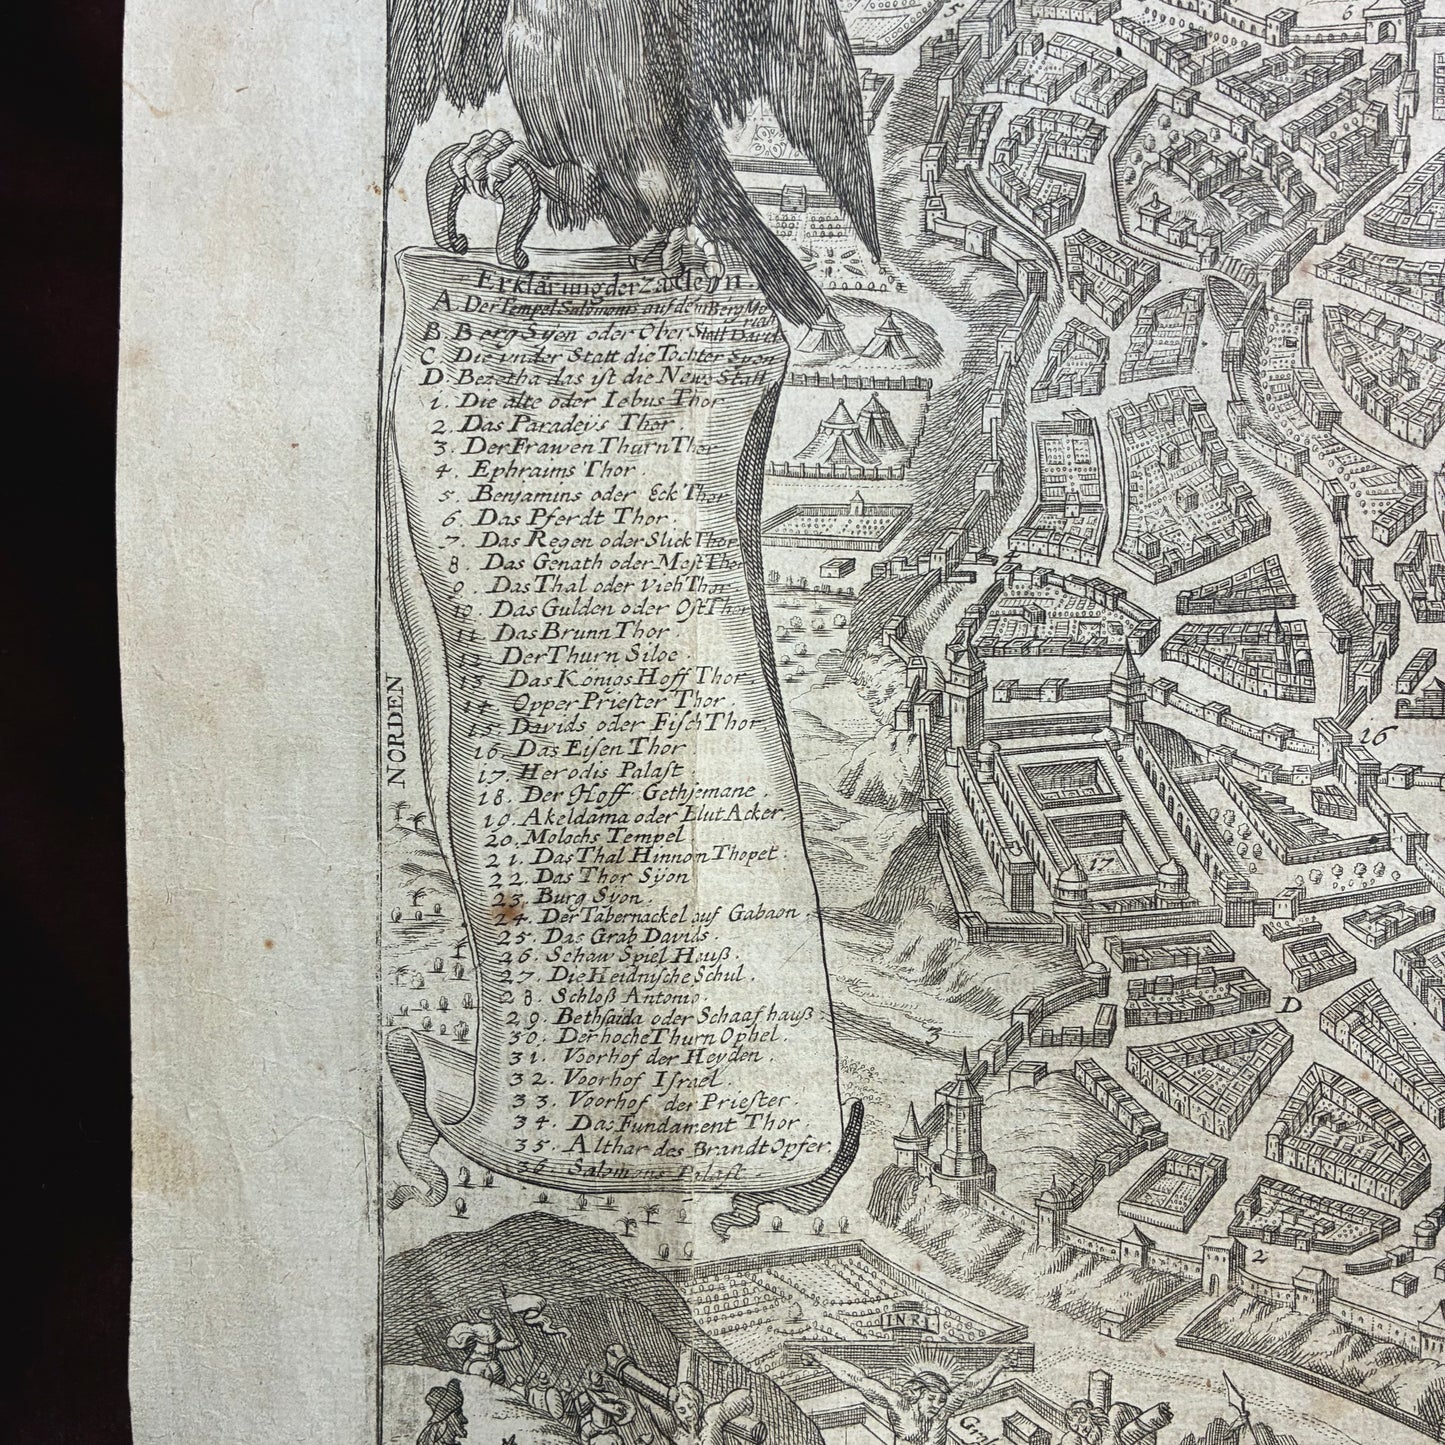 Erklärung der Zalleyn.
A. Der Tempel Salomonis auf den Berg Moriah
B. Berg Syon oder Ober Statt David
C. Die under Statt die Tochter Syon
D. Bezetha das ist die Newe Statt
1. Die alte oder Iebus Thor
2. Das Paradeÿs Thor
3. Der Frawen Thurn Thor
4. Ephraims Thor
5. Benjamins oder Eck Thor
6. Das Pferdt Thor.
7. Das Regen oder Slick Thor
8. Das Genath oder Mest Thor
9. Das Thal oder Vieh Thor
10. Das Gulden oder Ost Thor
11. Das Brunn Thor.
12. Der Thurn Siloe.
13. Das Konigs Hoff Thor
14. Opper Priester Thor.
15. Davids oder Fisch Thor
16. Das Eisen Thor
17. Herodis Palast.
18. Der Hoff Gethsemane.
19. Akeldama oder Blut Acker.
20. Molochs Tempel
21. Das Thal Hinnon Thopet.
22. Das Thor Sÿon
23. Burg Sÿon.
24. Der Tabernackel auf Gabaon
25. Das Grab Davids.
26. Schaw Spiel Hauß.
27. Die Heidnische Schul.
28. Schloß Antonio.
29. Bethsaida oder Schaafhauß.
30. Der hoche Thurn Ophel.
31. Voorhof der Heyden.
32. Voorhof Israel.
33. Voorhof der Priester.
34. Das Fundament Thor
35. Althar des Brandt Opfer.
36. Salomons Palast.
NORDEN
5
6
4
16
17
D
3
2
INRI